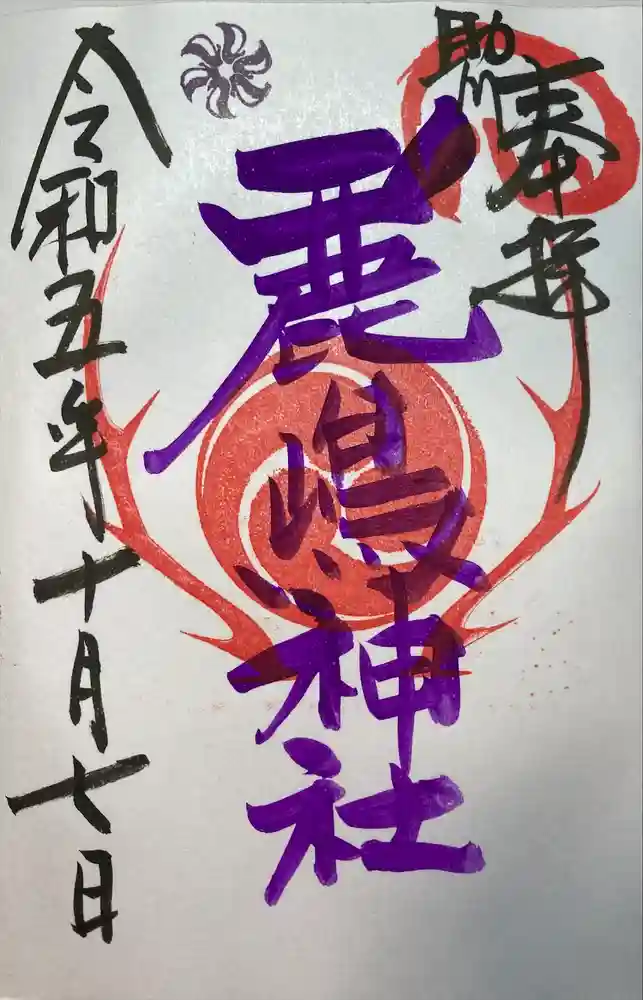 助川
奉拝
鹿嶋神社
令和五年十月七日